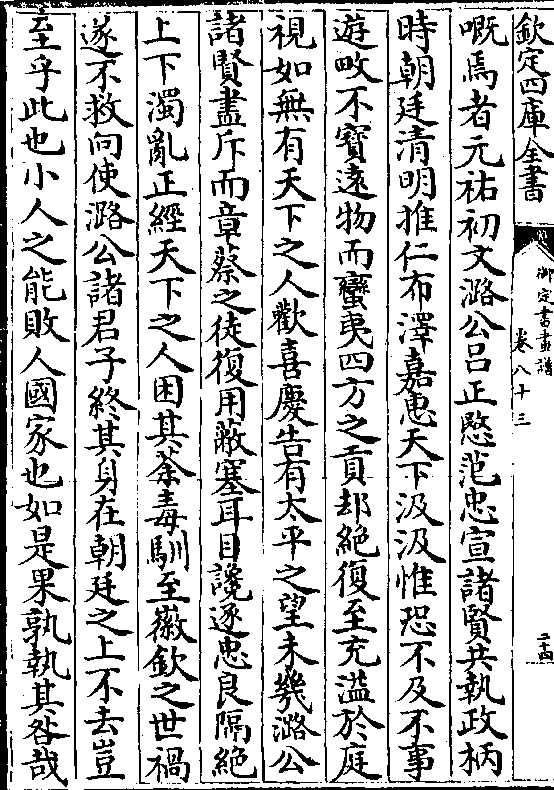 欽定四庫全書
御定書畫譜
卷八十三
二十四
嘅焉者元祐初文潞公呂正愍范忠宣諸賢共執政柄
時朝廷清明推仁布澤嘉惠天下汲汲惟恐不及不事
遊畋不寶遠物而蠻夷四方之貢却絶復至充溢於庭
視如無有天下之人歡喜慶告有太平之望未幾潞公
諸賢盡斥而章蔡之徒復用蔽塞耳目讒逐忠良隔絶
上下濁亂正經天下之人困其荼毒馴至徽欽之世禍
遂不救向使潞公諸君子終其身在朝廷之上不去豈
至乎此也小人之能敗人國家也如是果孰執其咎哉